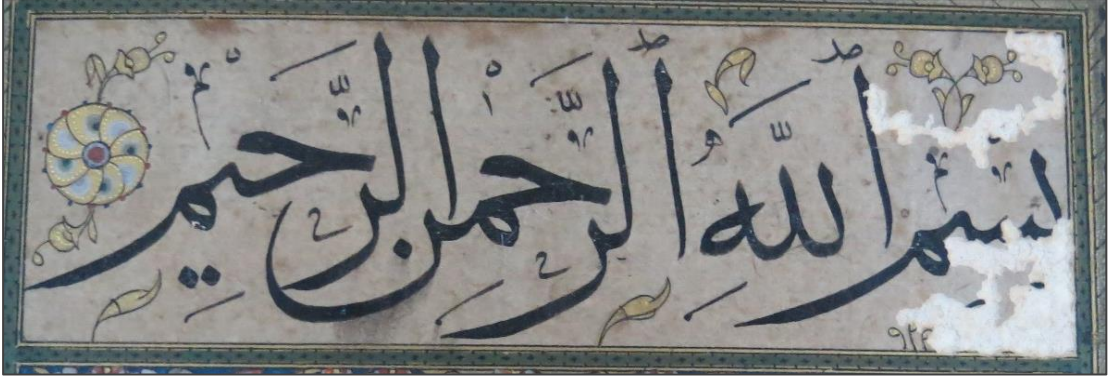 بِسْمِ اللَّهِ الرَّحْمٰنِ الرَّحِيمِ
٩٢٤